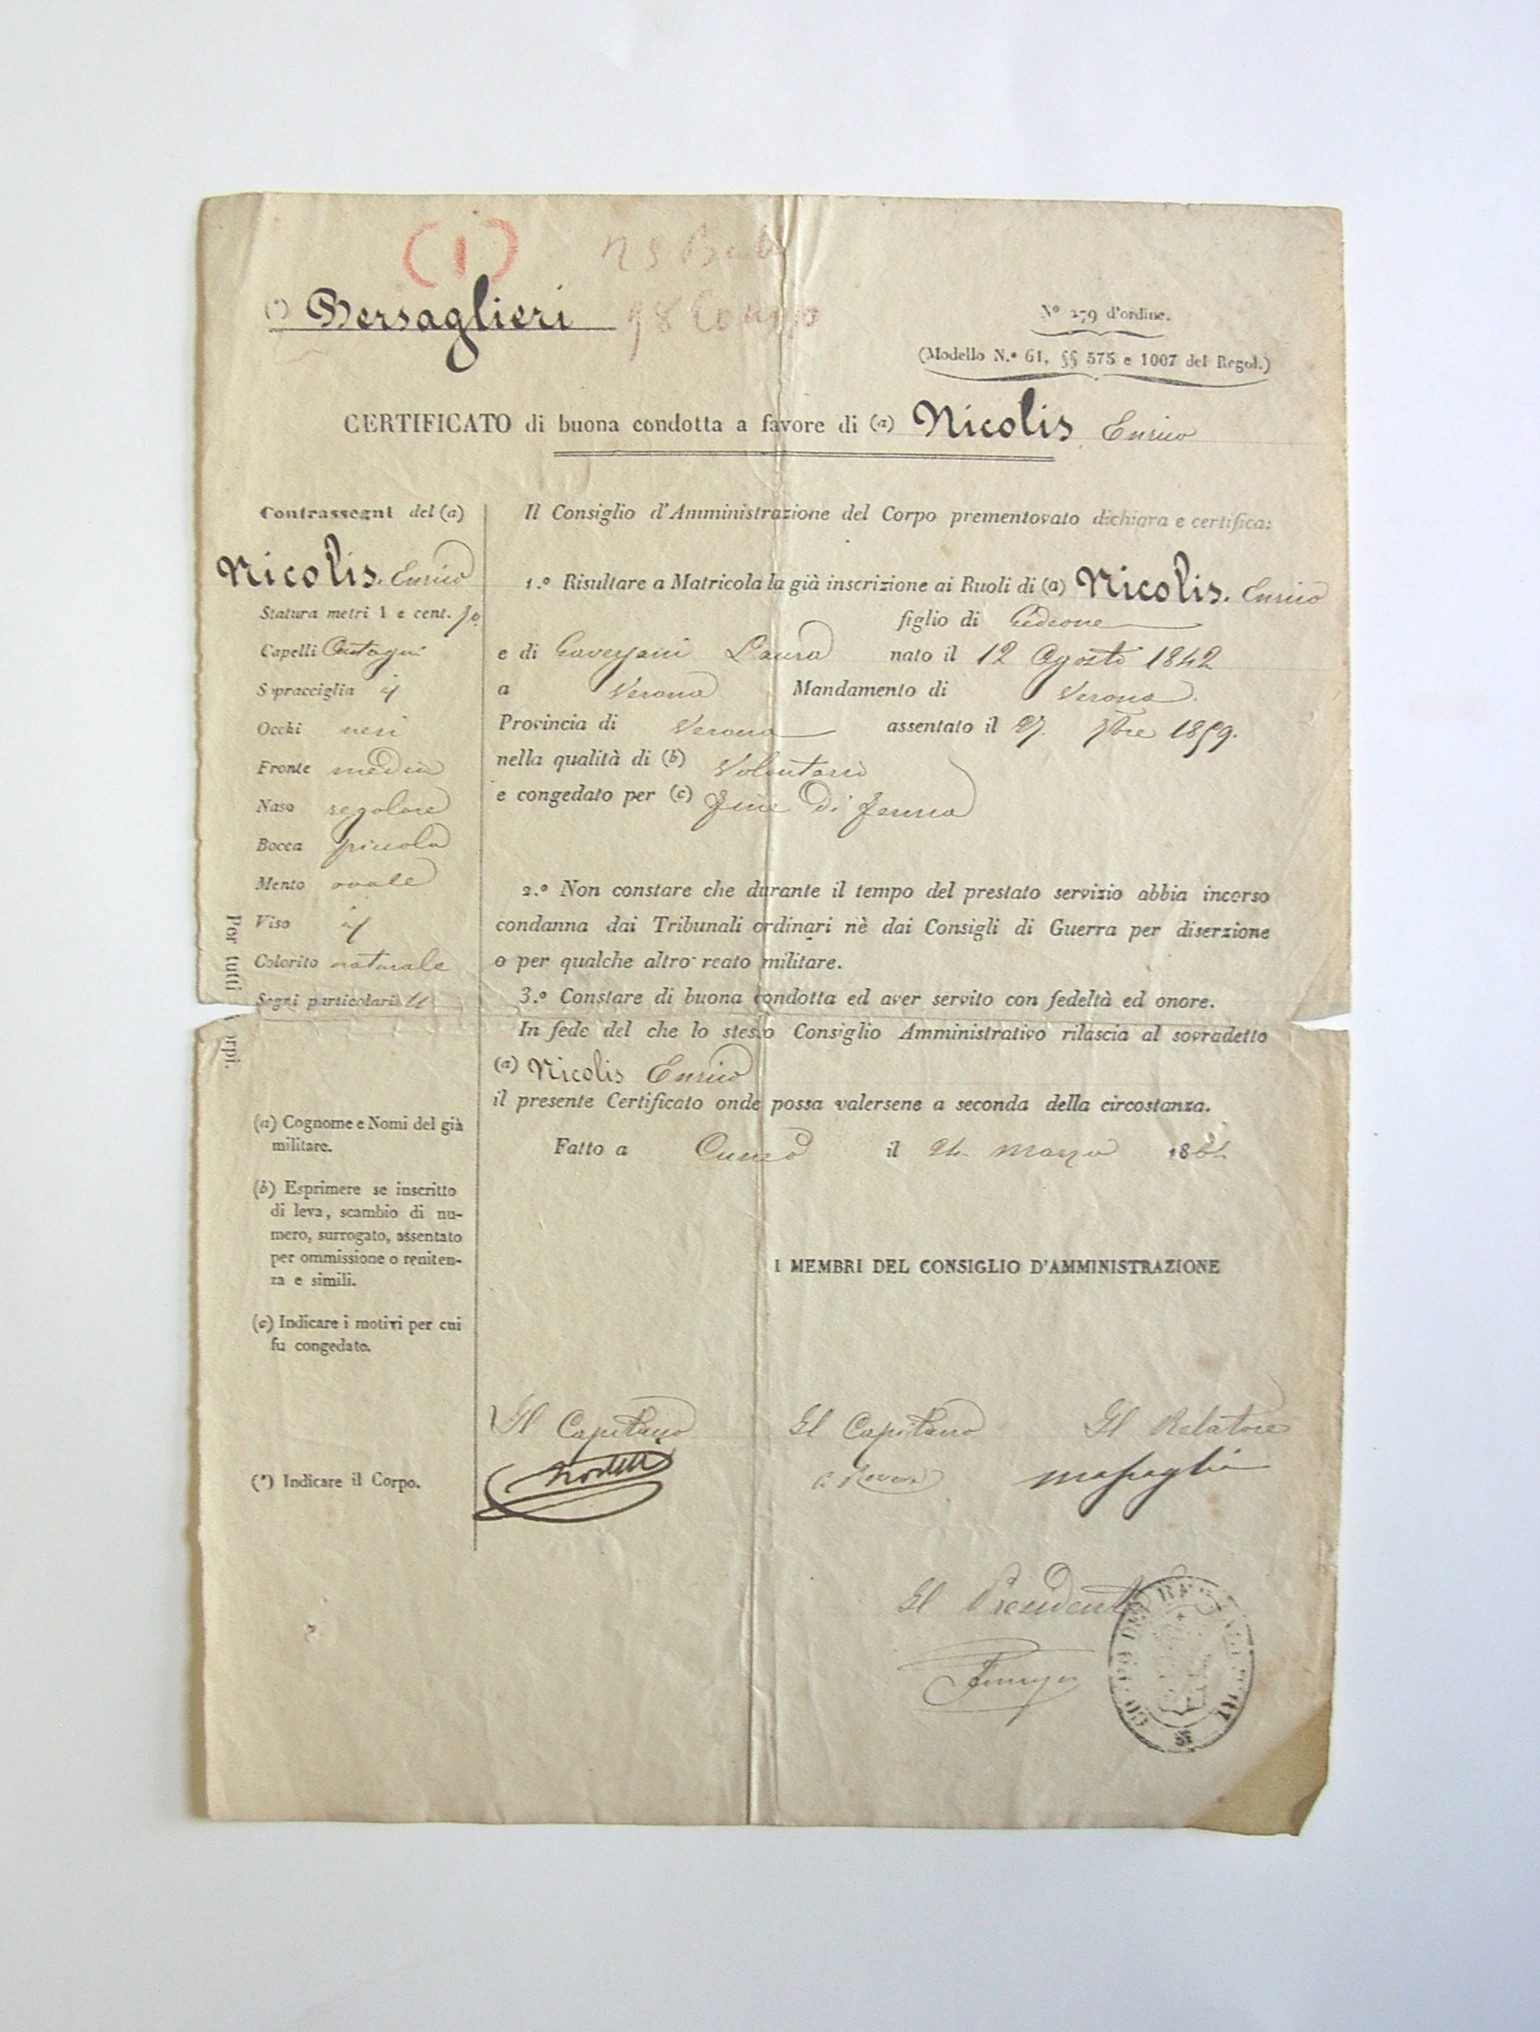 (1)
(*) Bersaglieri
98 Comp
Nº 279 d'ordine.
(Modello N.º 61, §§ 575 e 1007 del Regol.)
CERTIFICATO di buona condotta a favore di (a) Nicolis Enrico
Contrassegni del (a)
Nicolis. Enrico
Statura metri 1 e cent. 70
Capelli Castagni
Sopracciglia id
Occhi neri
Fronte media
Naso regolare
Bocca piccola
Mento ovale
Viso id
Colorito naturale
Segni particolari
Per tutti orpi.
(a) Cognome e Nomi del già
militare.
(b) Esprimere se inscritto
di leva, scambio di nu-
mero, surrogato, assentato
per ommissione o reniten-
za e simili.
(c) Indicare i motivi per cui
fu congedato.
(*) Indicare il Corpo.
Il Consiglio d'Amministrazione del Corpo prementovato dichiara e certifica:
1.º Risultare a Matricola la già inscrizione ai Ruoli di (a) Nicolis. Enrico
figlio di Gedeone
e di Laura nato il 12 Agosto 1842
a Verona Mandamento di Verona.
Provincia di Verona assentato il 27. 7bre 1859.
nella qualità di (b) Volontario
e congedato per (c) fine di ferma
2.º Non constare che durante il tempo del prestato servizio abbia incorso
condanna dai Tribunali ordinari nè dai Consigli di Guerra per diserzione
o per qualche altro reato militare.
3.º Constare di buona condotta ed aver servito con fedeltà ed onore.
In fede del che lo stesso Consiglio Amministrativo rilascia al sovradetto
(a) Nicolis Enrico
il presente Certificato onde possa valersene a seconda della circostanza.
Fatto a Cuneo il 24 Marzo 186
I MEMBRI DEL CONSIGLIO D'AMMINISTRAZIONE
Il Capitano Il Capitano Il Relatore
Il Presidente
CORPO DEI BERSAGLIERI